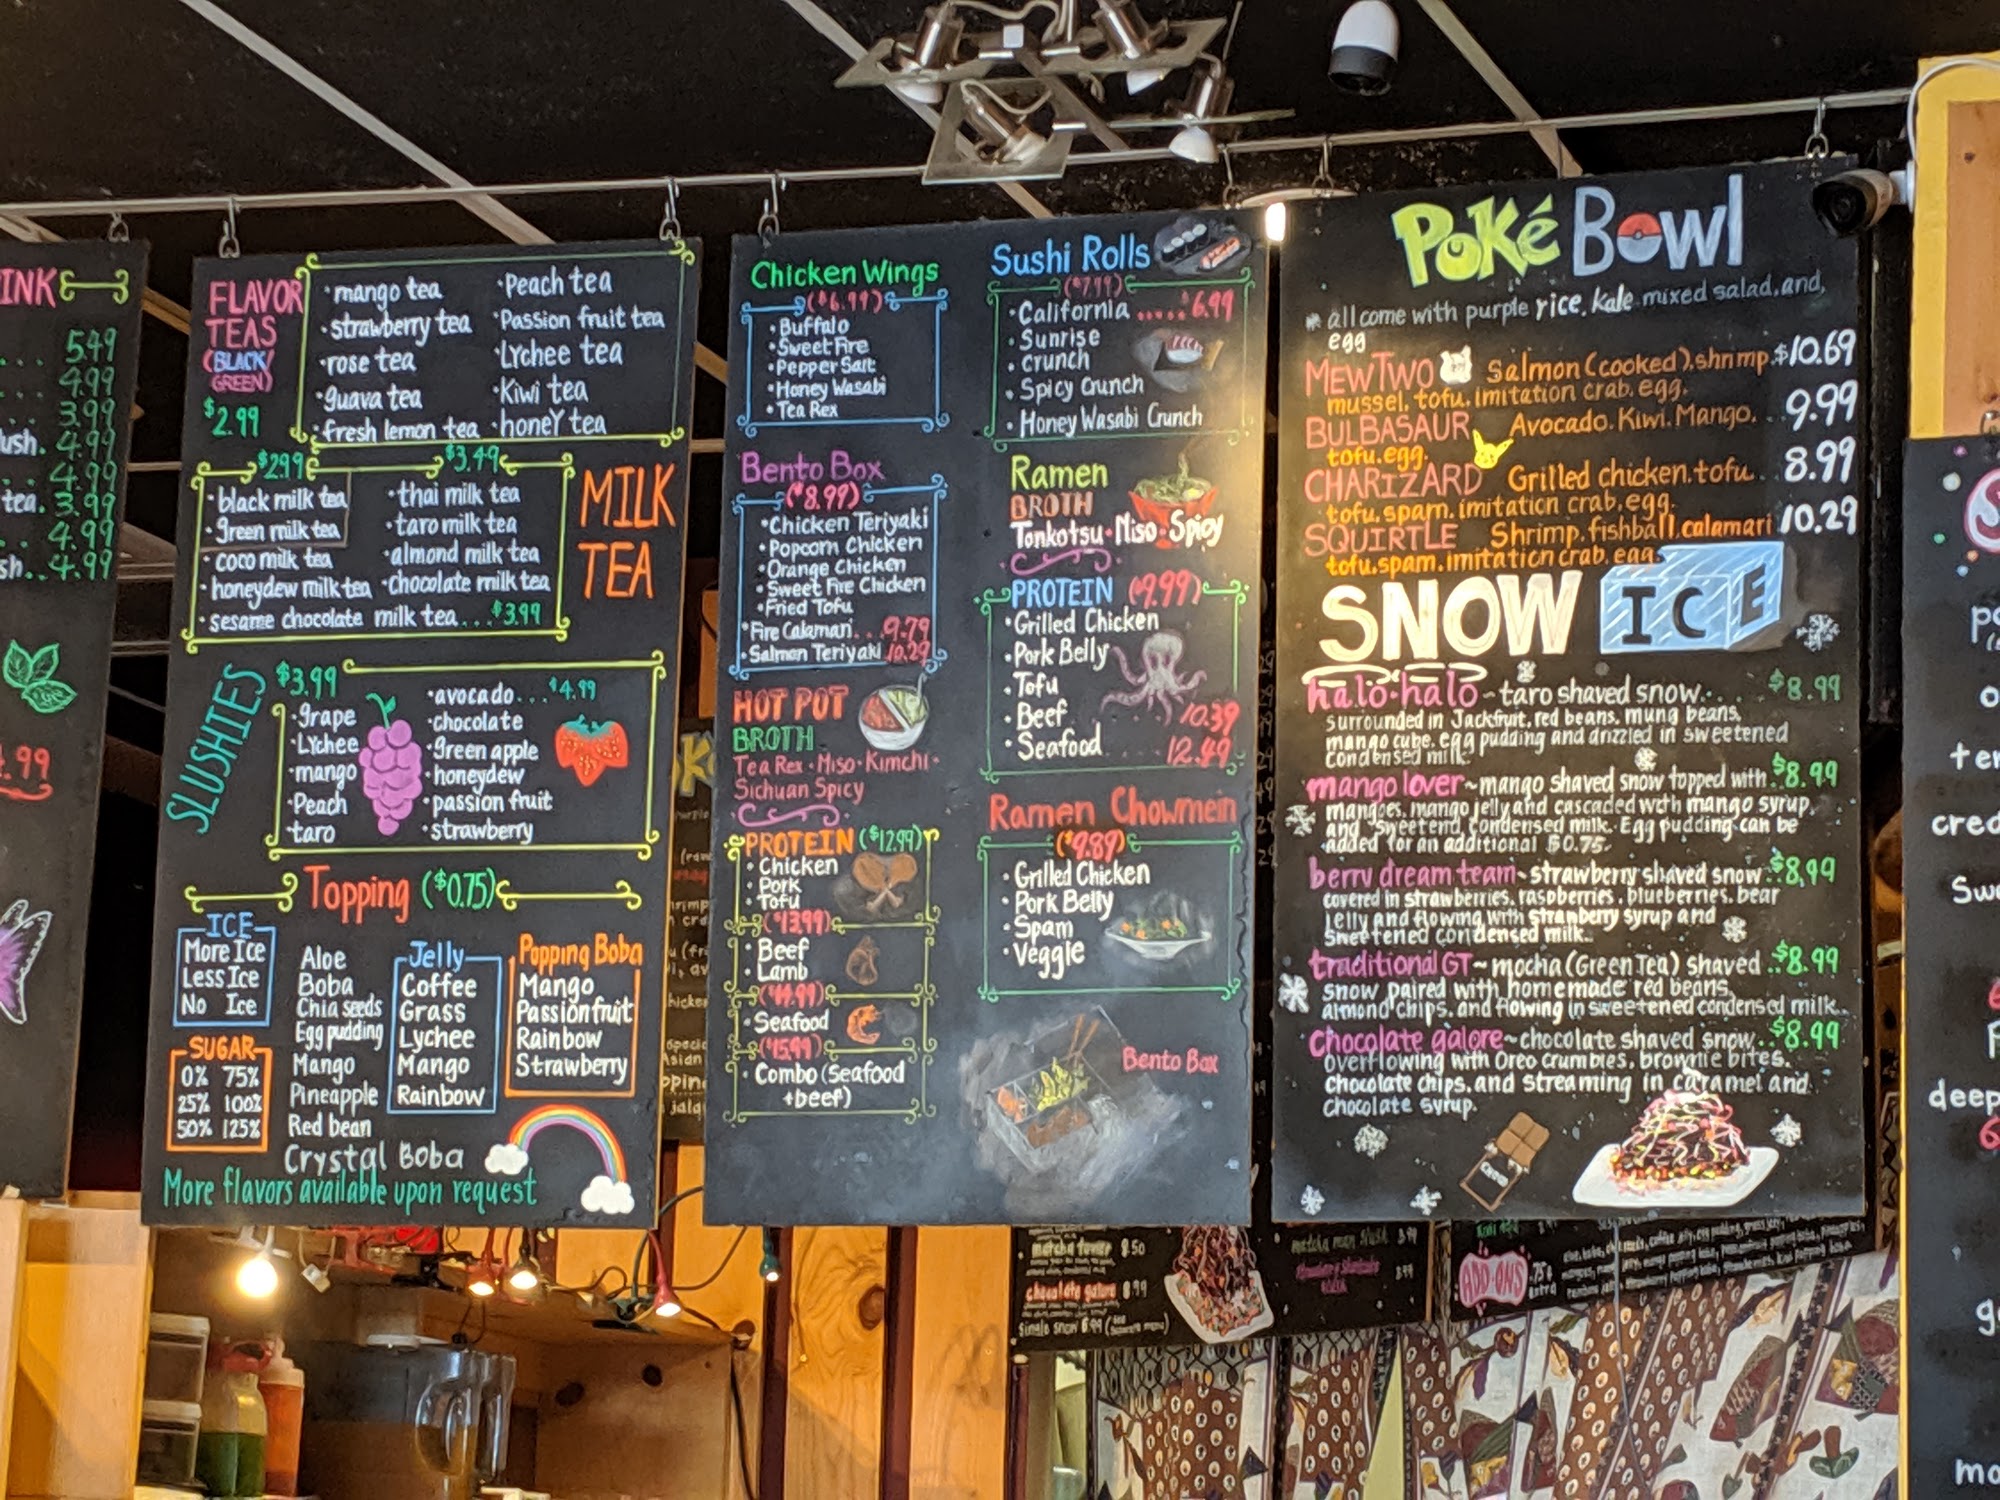 INK
5.49
4.99
3.99
lush. 4.99
4.99
tea. 3.99
4.99
sh.. 4.99
.99
FLAVOR
TEAS
(BLACK/
GREEN)
$2.99
·mango tea
·strawberry tea
·rose tea
·guava tea
·fresh lemon tea
·Peach tea
·Passion fruit tea
·Lychee tea
·Kiwi tea
·honeY tea
$2.99
$3.49
·black milk tea
·green milk tea
·coco milk tea
·honeydew milk tea
·thai milk tea
·taro milk tea
·almond milk tea
·chocolate milk tea
·sesame chocolate milk tea...$3.99
MILK
TEA
SLUSHIES
$3.99
·grape
·LYchee
·mango
·Peach
·taro
·avocado...$4.99
·chocolate
·green apple
·honeydew
·passion fruit
·strawberry
Topping ($0.75)
ICE
More Ice
Less Ice
No Ice
SUGAR
0% 75%
25% 100%
50% 125%
Aloe
Boba
Chia seeds
Egg pudding
Mango
Pineapple
Red bean
Crystal Boba
Jelly
Coffee
Grass
Lychee
Mango
Rainbow
Popping Boba
Mango
Passionfruit
Rainbow
Strawberry
More flavors available upon request
Chicken Wings
($6.99)
·Buffalo
·Sweet Fire
·Pepper Salt
·Honey Wasabi
·Tea Rex
Bento Box
($8.99)
·Chicken Teriyaki
·Popcorn Chicken
·Orange Chicken
·Sweet Fire Chicken
·Fried Tofu
·Fire Calamari...9.79
·Salmon Teriyaki 10.29
HOT POT
BROTH
Tea Rex·Miso·Kimchi·
Sichuan Spicy
PROTEIN ($12.99)
·Chicken
·Pork
·Tofu
($13.99)
·Beef
·Lamb
($14.99)
·Seafood
($15.99)
·Combo (Seafood
+beef)
Sushi Rolls
($7.99)
·California.....$6.99
·Sunrise
·crunch
·Spicy Crunch
·Honey Wasabi Crunch
Ramen
BROTH
Tonkotsu·Miso·Spicy
PROTEIN ($9.99)
·Grilled Chicken
·Pork Belly
·Tofu
·Beef 10.39
·Seafood 12.49
Ramen Chowmein
($9.89)
·Grilled Chicken
·Pork Belly
·Spam
·Veggie
Bento Box
Poké Bowl
* all come with purple rice, kale mixed salad, and,
egg
MEWTWO Salmon (cooked), shrimp. $10.69
mussel, tofu, imitation crab, egg.
BULBASAUR Avocado, Kiwi, Mango. .. 9.99
tofu, egg.
CHARIZARD Grilled chicken, tofu.. 8.99
tofu, spam, imitation crab, egg.
SQUIRTLE Shrimp, fishball, calamari 10.29
tofu, spam, imitation crab, egg
SNOW ICE
halo·halo~taro shaved snow... $8.99
surrounded in Jackfruit, red beans, mung beans,
mango cube, egg pudding and drizzled in sweetened
condensed milk.
mango lover~mango shaved snow topped with.$8.99
mangoes, mango jelly and cascaded with mango syrup,
and sweetend condensed milk. Egg pudding can be
added for an additional $0.75.
berry dream team~strawberry shaved snow.$8.99
covered in strawberries, raspberries, blueberries, bear
jelly and flowing with strawberry syrup and
sweetened condensed milk..
traditional GT~mocha (Green Tea) shaved ..$8.99
snow paired with homemade red beans,
almond chips, and flowing in sweetened condensed milk..
chocolate galore~chocolate shaved snow..$8.99
overflowing with Oreo crumbles, brownie bites,
chocolate chips, and streaming in caramel and
chocolate syrup.
matcha tower 8.50
chocolate galore 8.99
single snow 6.99
matcha man slush 3.99
ADD-ONS .75¢
extra
cred
Swe
deep